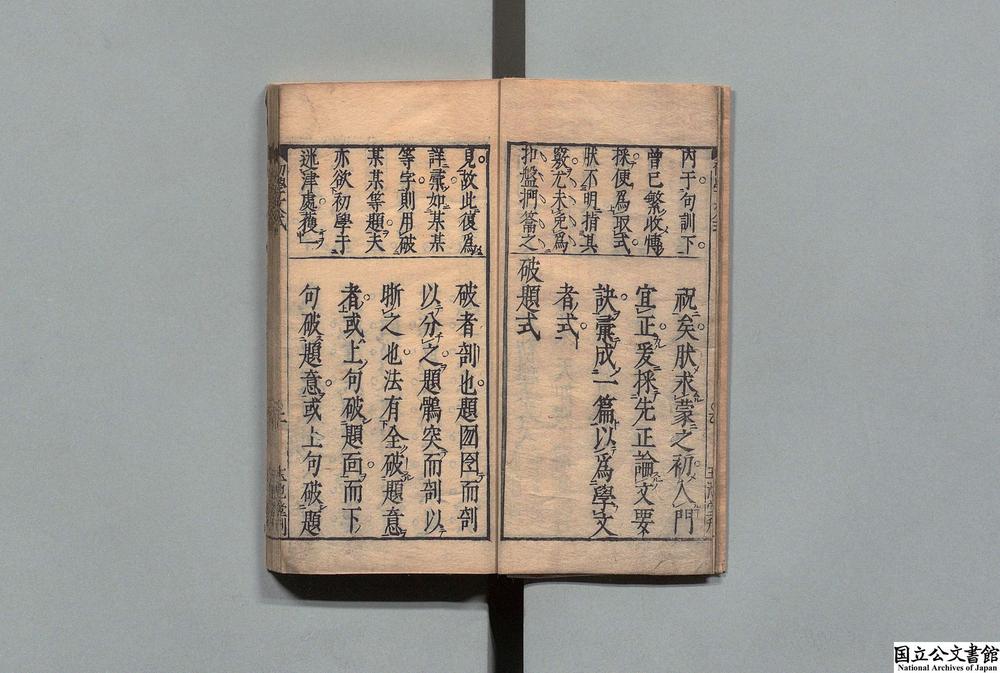 内于句訓下
曾已繁收慱
採便為取式
狀不明指其
竅尤未免為
扣盤捫籥之
祝矣狀求蒙之初入門
宜正爰採先正論文要
訣彙成一篇以爲學文
者式
破題式
見故此復爲
詳彙如某某
等字則用破
某某等題夫
亦欲初學于
迷津處獲
破者剖也題囫圇而剖
以分之題鶻突而剖以
晣之也法有全破題意
者或上句破題面而下
句破題意或上句破題
国立公文書館
National Archives of Japan